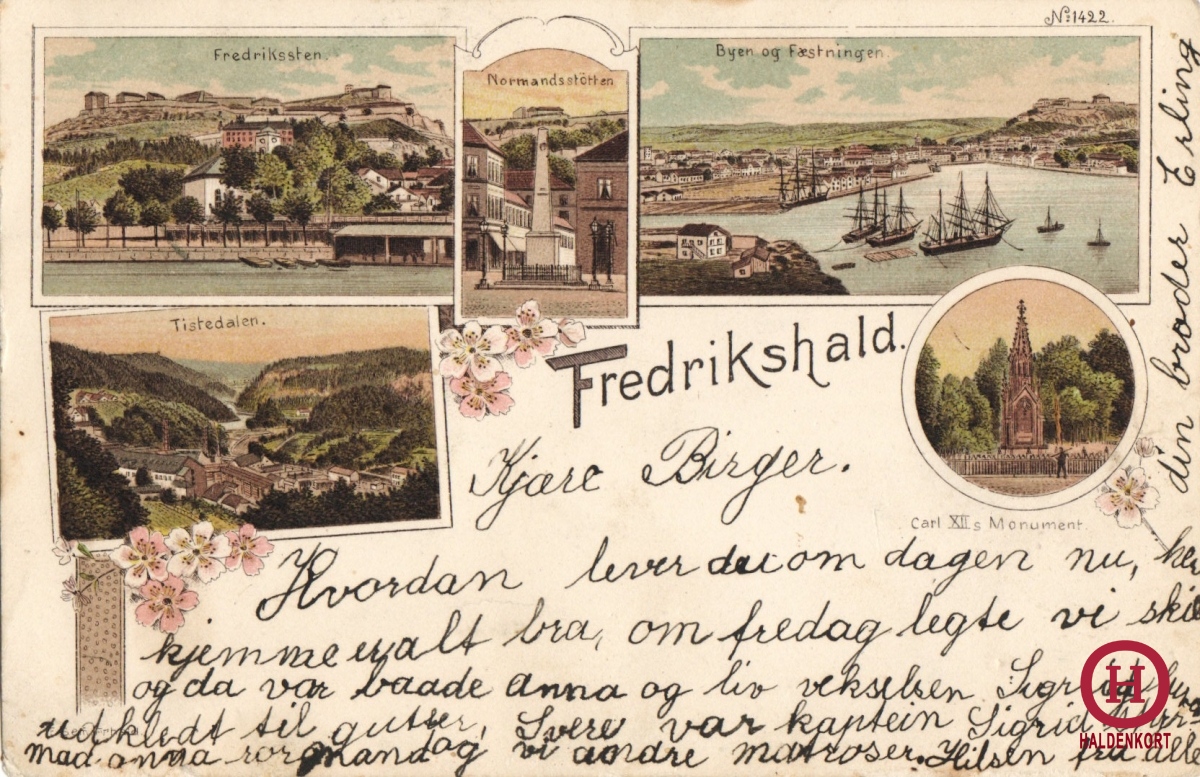 No: 1422.
Fredrikssten.
Normandsstötten
Byen og Fæstningen.
Tistedalen.
Fredrikshald.
Carl XII s Monument.
Kjære Birger.
Hvordan lever du om dagen nu, her
hjemme er alt bra, om fredag legte vi
og da var baade anna og liv Sigrid
udkledt til gutter, Svere var kaptein Sigrid
mad anna vi andre matroser. Hilsen fra alle
din broder Erling
H
HALDENKORT